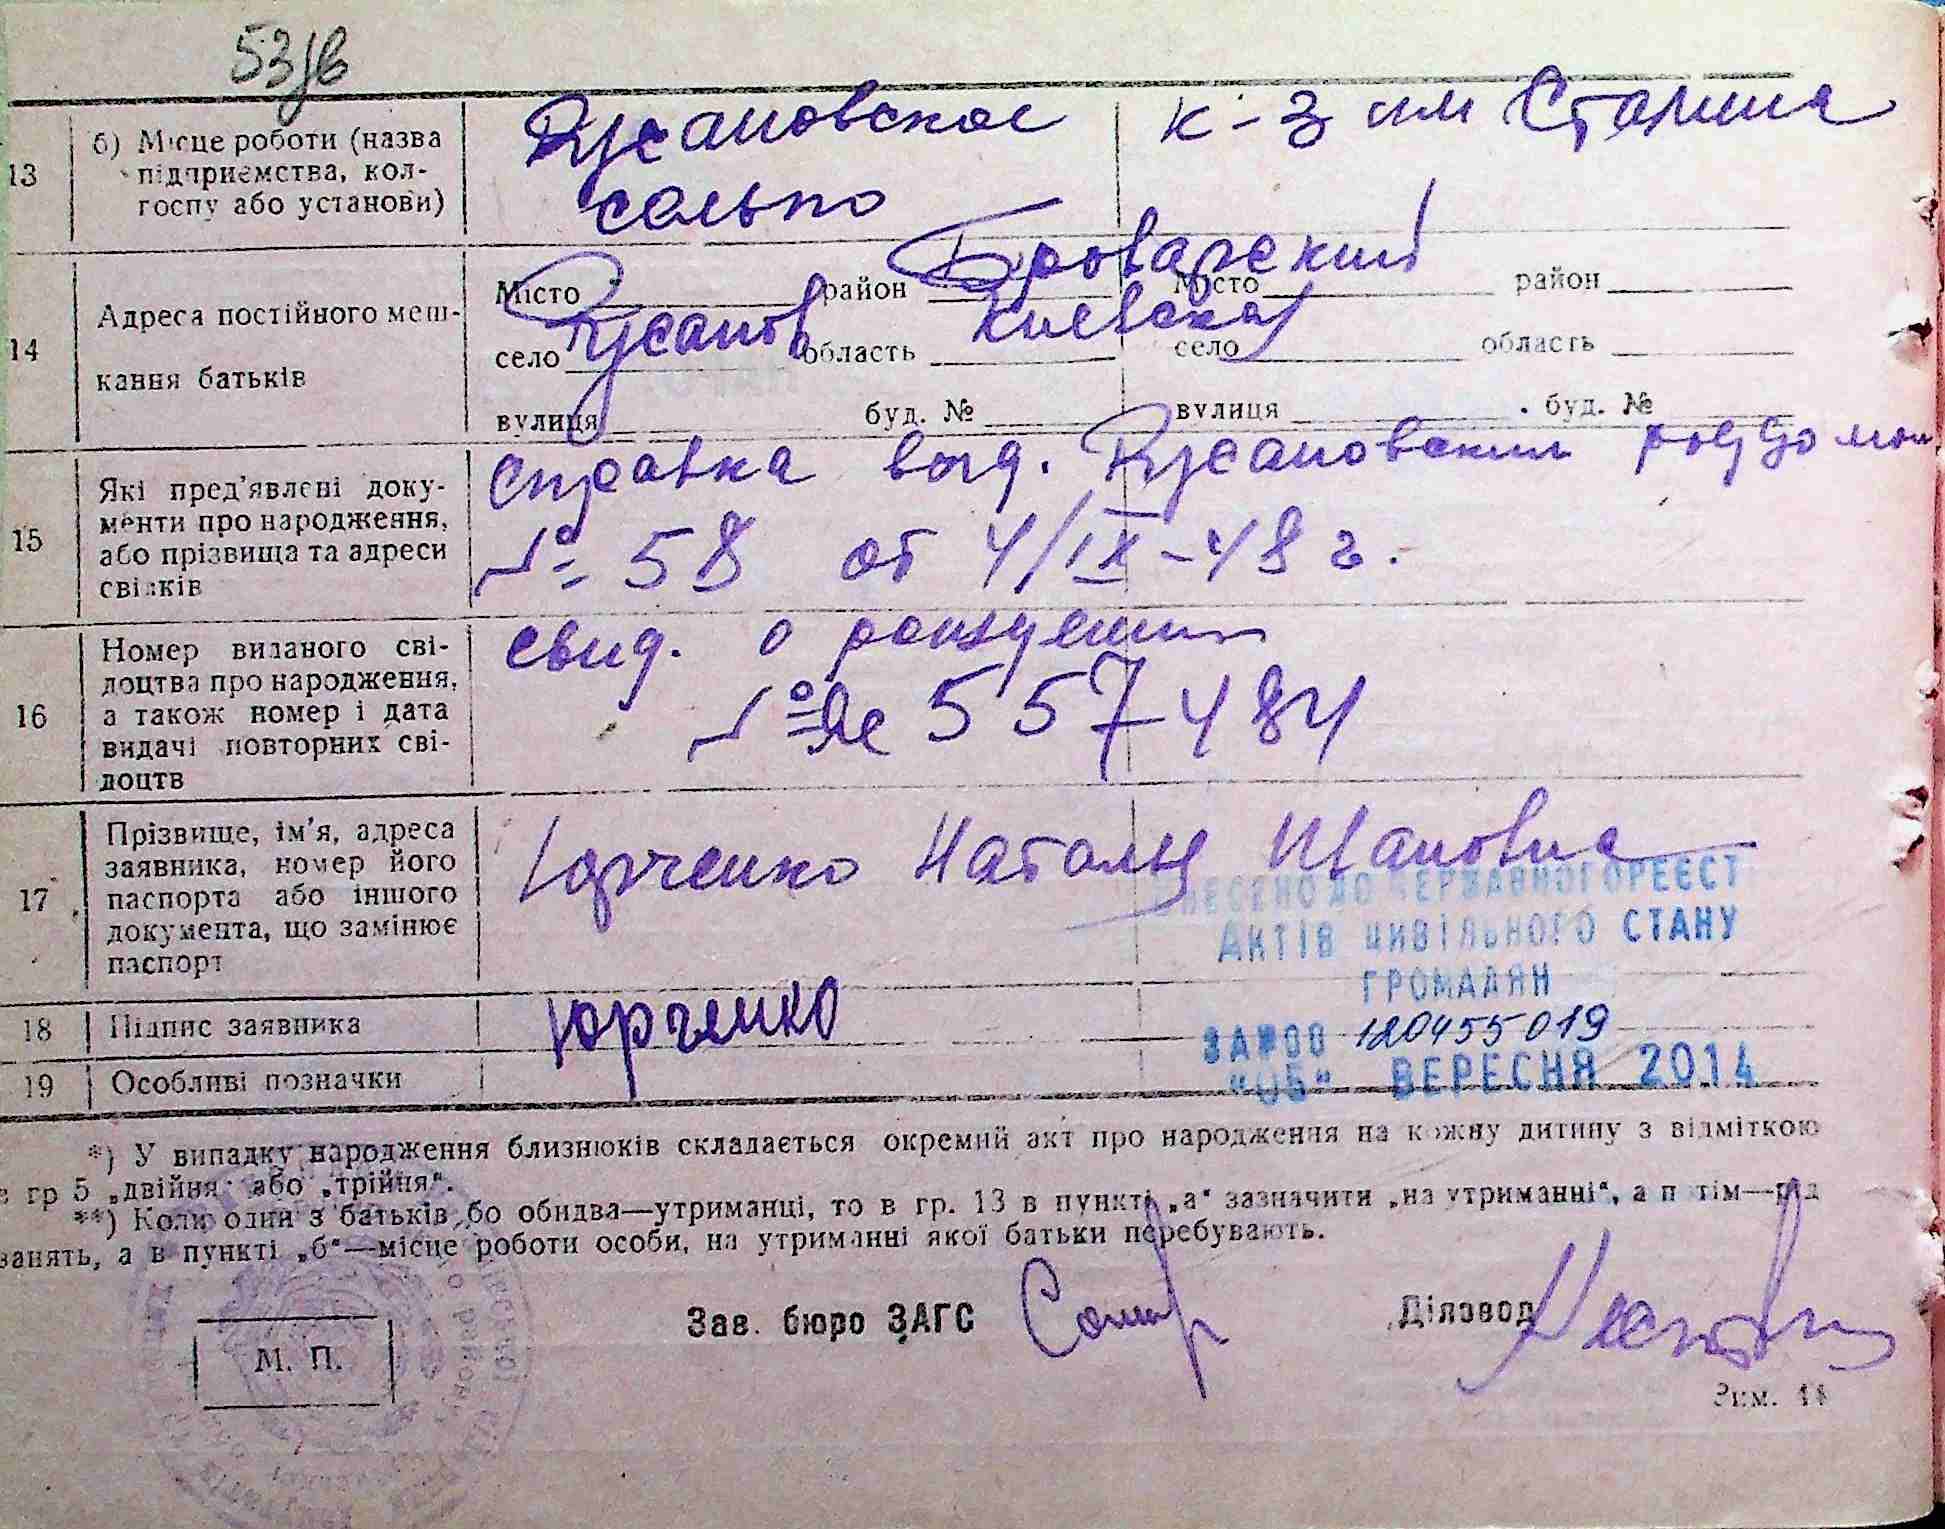 53/в
13 б) Місце роботи (назва підприємства, колгоспу або установи)
Русановское сельпо
к-з им Сталина
14 Адреса постійного мешкання батьків
Місто район Броварский Місто район
село Русанов область Киевская село область
вулиця буд. № вулиця буд. №
15 Які пред'явлені документи про народження, або прізвища та адреси свідків
справка выд. Русановским роддомом
№ 58 от 4/IX-48 г.
16 Номер виданого свідоцтва про народження, а також номер і дата видачі повторних свідоцтв
свид. о рождении
№ 557484
17 Прізвище, ім'я, адреса заявника, номер його паспорта або іншого документа, що замінює паспорт
Юрченко Наталья Ивановна
ВНЕСЕНО ДО ДЕРЖАВНОГО РЕЄСТ
АКТІВ ЦИВІЛЬНОГО СТАНУ
ГРОМАДЯН
18 Підпис заявника Юрченко
ЗА №00 120455019
19 Особливі позначки
"05" ВЕРЕСНЯ 2014
*) У випадку народження близнюків складається окремий акт про народження на кожну дитину з відміткою
в гр 5 „двійня" або „трійня".
**) Коли один з батьків бо обидва—утриманці, то в гр. 13 в пункті „а" зазначити „на утриманні", а п тім—рід
занять, а в пункті „б"—місце роботи особи, на утриманні якої батьки перебувають.
Зав. бюро ЗАГС Діловод
М. П.
Зим.